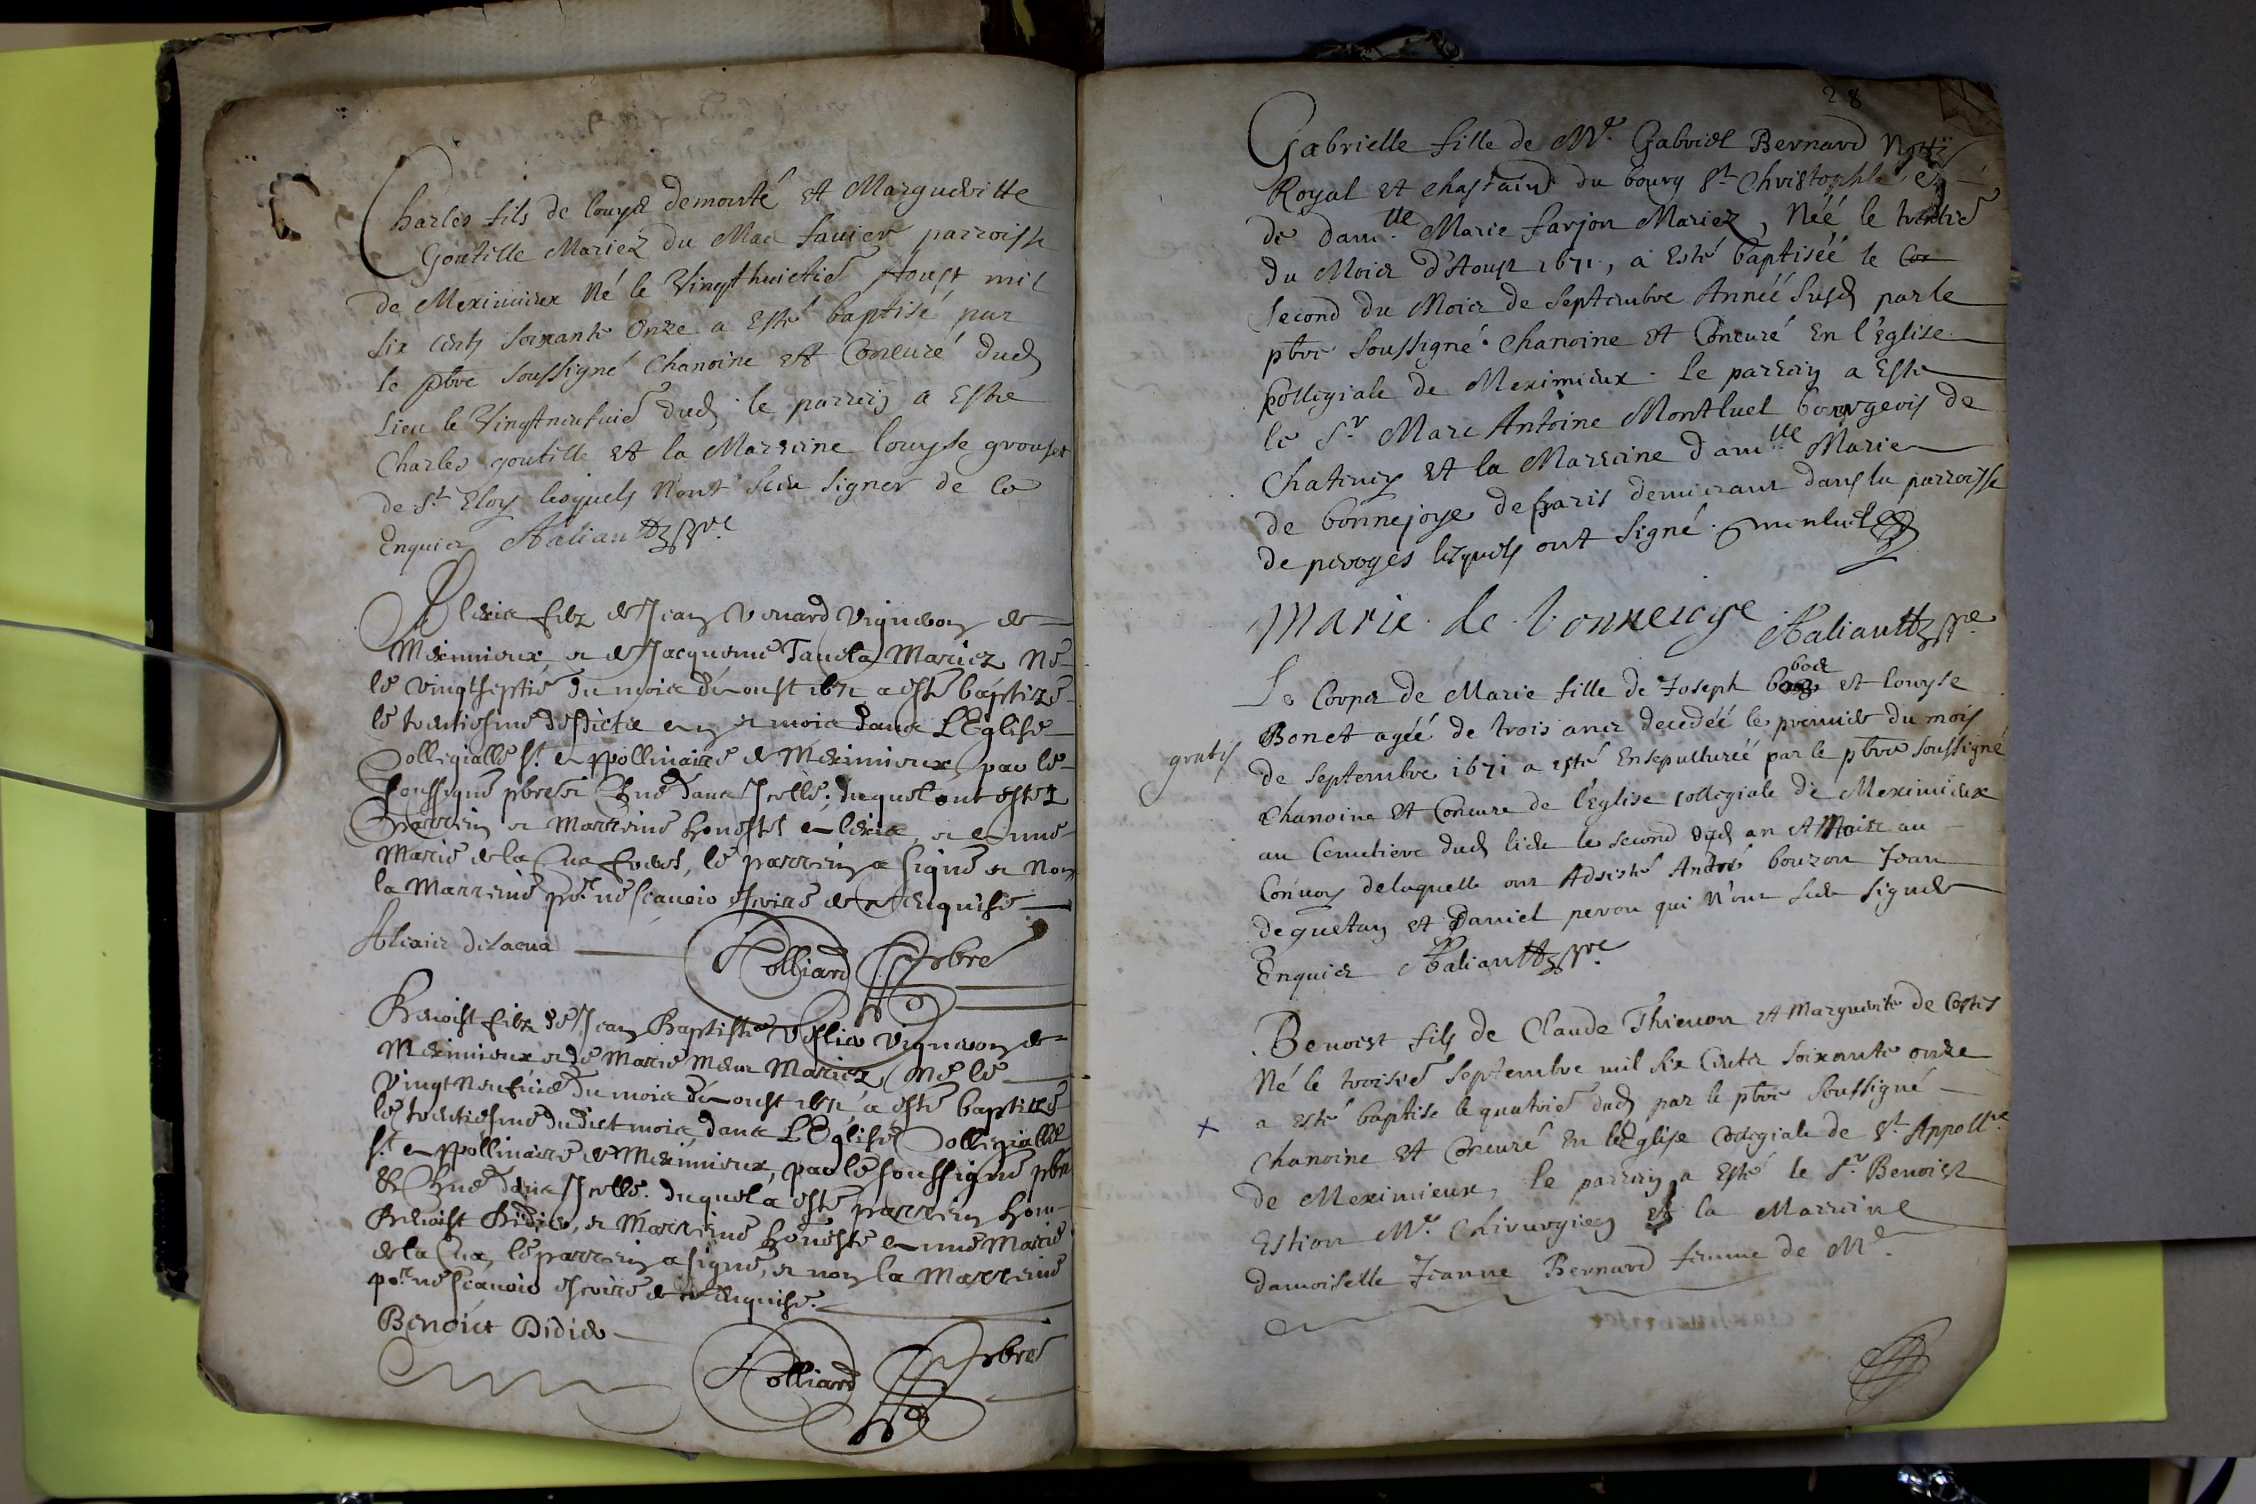 Charles fils de Louys demonté et Margueritte
Goutille Mariez du Mas Favier parroisse
de Meximieux Né le Vingthuictie Aoust mil
six cents soixante Onze a Esté baptisé par
le pbre soussigné Chanoine et Concuré dud
Lieu le Vingtneufuie dud le parrein a Este
Charles goutille et la Marraine louyse
de St Eloy lesquels N'ont sceu signer de ce
Enquis
fils de Jean vigneron de
Meximieux, et de Jacqueme Mariez Né
le vingtseptie du mois d'Aoust 1671 a esté baptizé
le trentiesme en mois dans L'Eglise
Collegialle St Appollinaire de Meximieux par le
soussigné pbre dans Icelle. duquel ont estez
parrein et Marreine
Marie de la le parrein a signé et Non
la Marreine pour ne scauoir escrire de ce Enquise
delacua Rolliard pbre
Benoist filz de Jean Baptiste vigneron de
Meximieux et de Marie Mariez Né le
vingt Neufuie du mois d'Aoust 1671 a esté baptizé
le trentiesme dudict mois, dans L'Eglise Collegialle
St Appollinaire de Meximieux, par le soussigné pbre
dans Icelle. duquel a esté parrein
Benoist Didier, et Marreine honeste Marie
de la le parrein a signé, et non la Marreine
pour ne scauoir escrire de ce enquise.
Benoict Didier
Rolliard pbre
28
Gabrielle fille de Me. Gabriel Bernard
Royal et chastain du bourg St Christophle et
de damlle Marie farjon Mariez, Néé le
du Mois d'Aoust 1671, a Esté baptiséé le
second du Mois de Septembre Annéé susd par le
pbre soussigné Chanoine et Concuré En l'Eglise
Collegiale de Meximieux. le parrein a Este
le Sr Marc Antoine Montluel bourgeois de
et la Marraine damlle Marie
de bonnejoye de paris demeurant dans la parroisse
de peroges lesquels ont signé. monluel
Marie de bonneioye
Le Corps de Marie fille de Joseph et louyse
Bonet agéé de trois ans decedéé le premier du mois
gratis
de Septembre 1671 a esté Ensepulturéé par le pbre soussigné
Chanoine et Concure de l'Eglise Collegiale de Meximieux
au Cemetiere dud lieu le second dud an et Mois au
Conuoy delaquelle ont Adsisté André bouzon Jean
deguetan et Daniel peron qui N'ont sceu signer
Enquis
Benoist fils de Claude Thieuon et Marguerite de Costes
Né le troisie Septembre mil six Cents soixante onze
a esté baptise le quatrie dud par le pbre soussigné
x
Chanoine et Concuré En l'Eglise Collegiale de St. Appollre
de Meximieux, le parrein a Esté le Sr Benoist
Estion Me. Chirurgien et la Marraine
damoiselle Jeanne Bernard femme de Me.